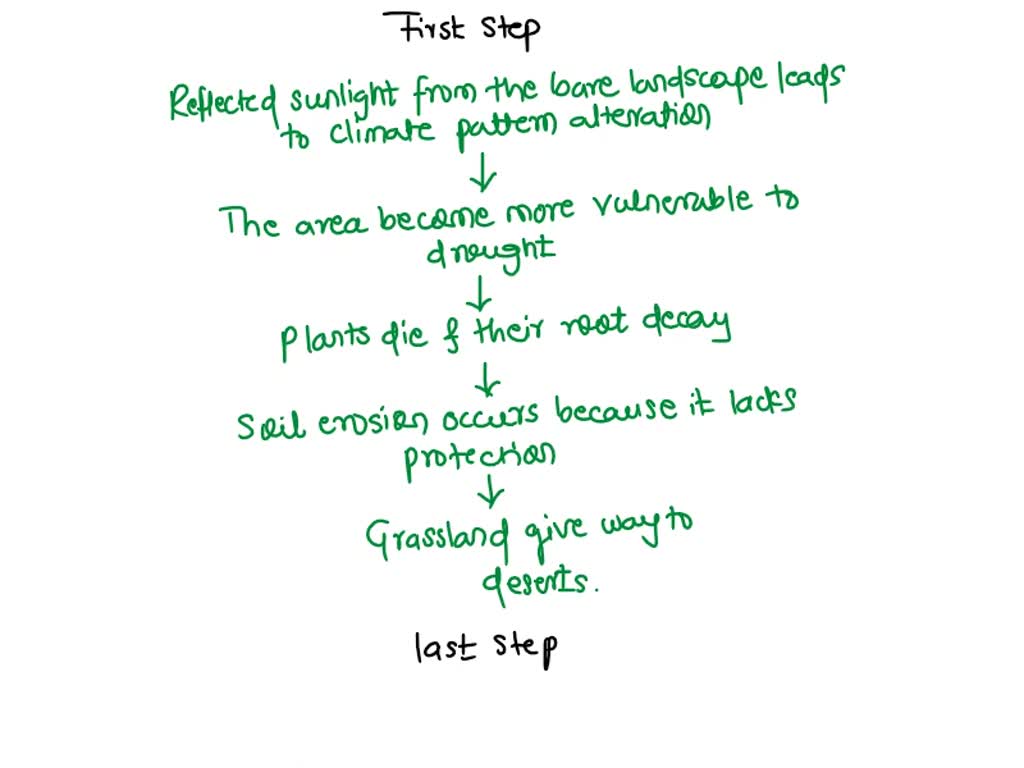 First Step
Reflected sunlight from the bare landscape leads
to climate pattern alteration
↓
The area become more vulnerable to
drought
↓
Plants die & their root decay
↓
Soil erosion occurs because it lacks
protection
↓
Grassland give way to
deserts.
last step